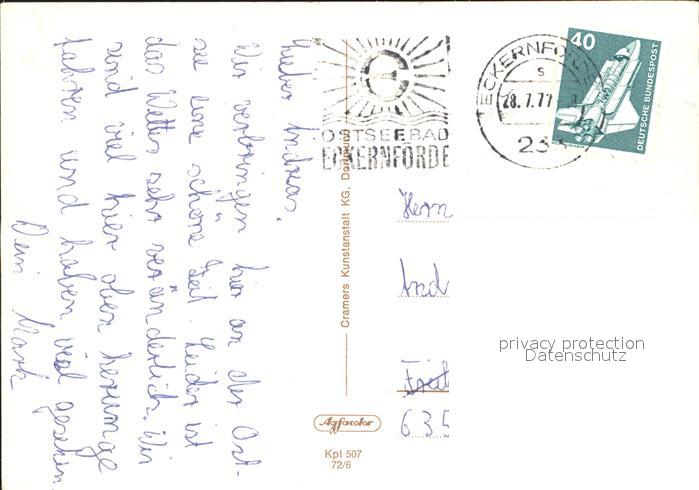 Lieber Andreas,
Wir verbringen hier an der Ost-
see eine schöne Zeit. Leider ist
das Wetter sehr veränderlich. Wir
sind viel hier oben herumge
fahren und haben viel gesehen.
Dein Mark
OSTSEEBAD
ECKERNFÖRDE
ECKERNFÖ
28.7.77
23
40
DEUTSCHE BUNDESPOST
Cramers Kunstanstalt KG, Dortmund
Herrn
And
635
privacy protection
Datenschutz
Agfacolor
Kpl 507
72/6